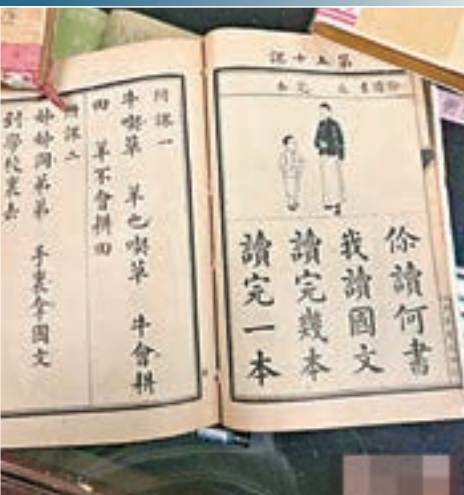 第五十課
你讀何書
我讀國文
讀完幾本
讀完一本
附課一
牛喫草 羊也喫草 牛會耕
田 羊不會耕田
附課二
姊姊同弟弟 手裏拿國文
到學校裏去